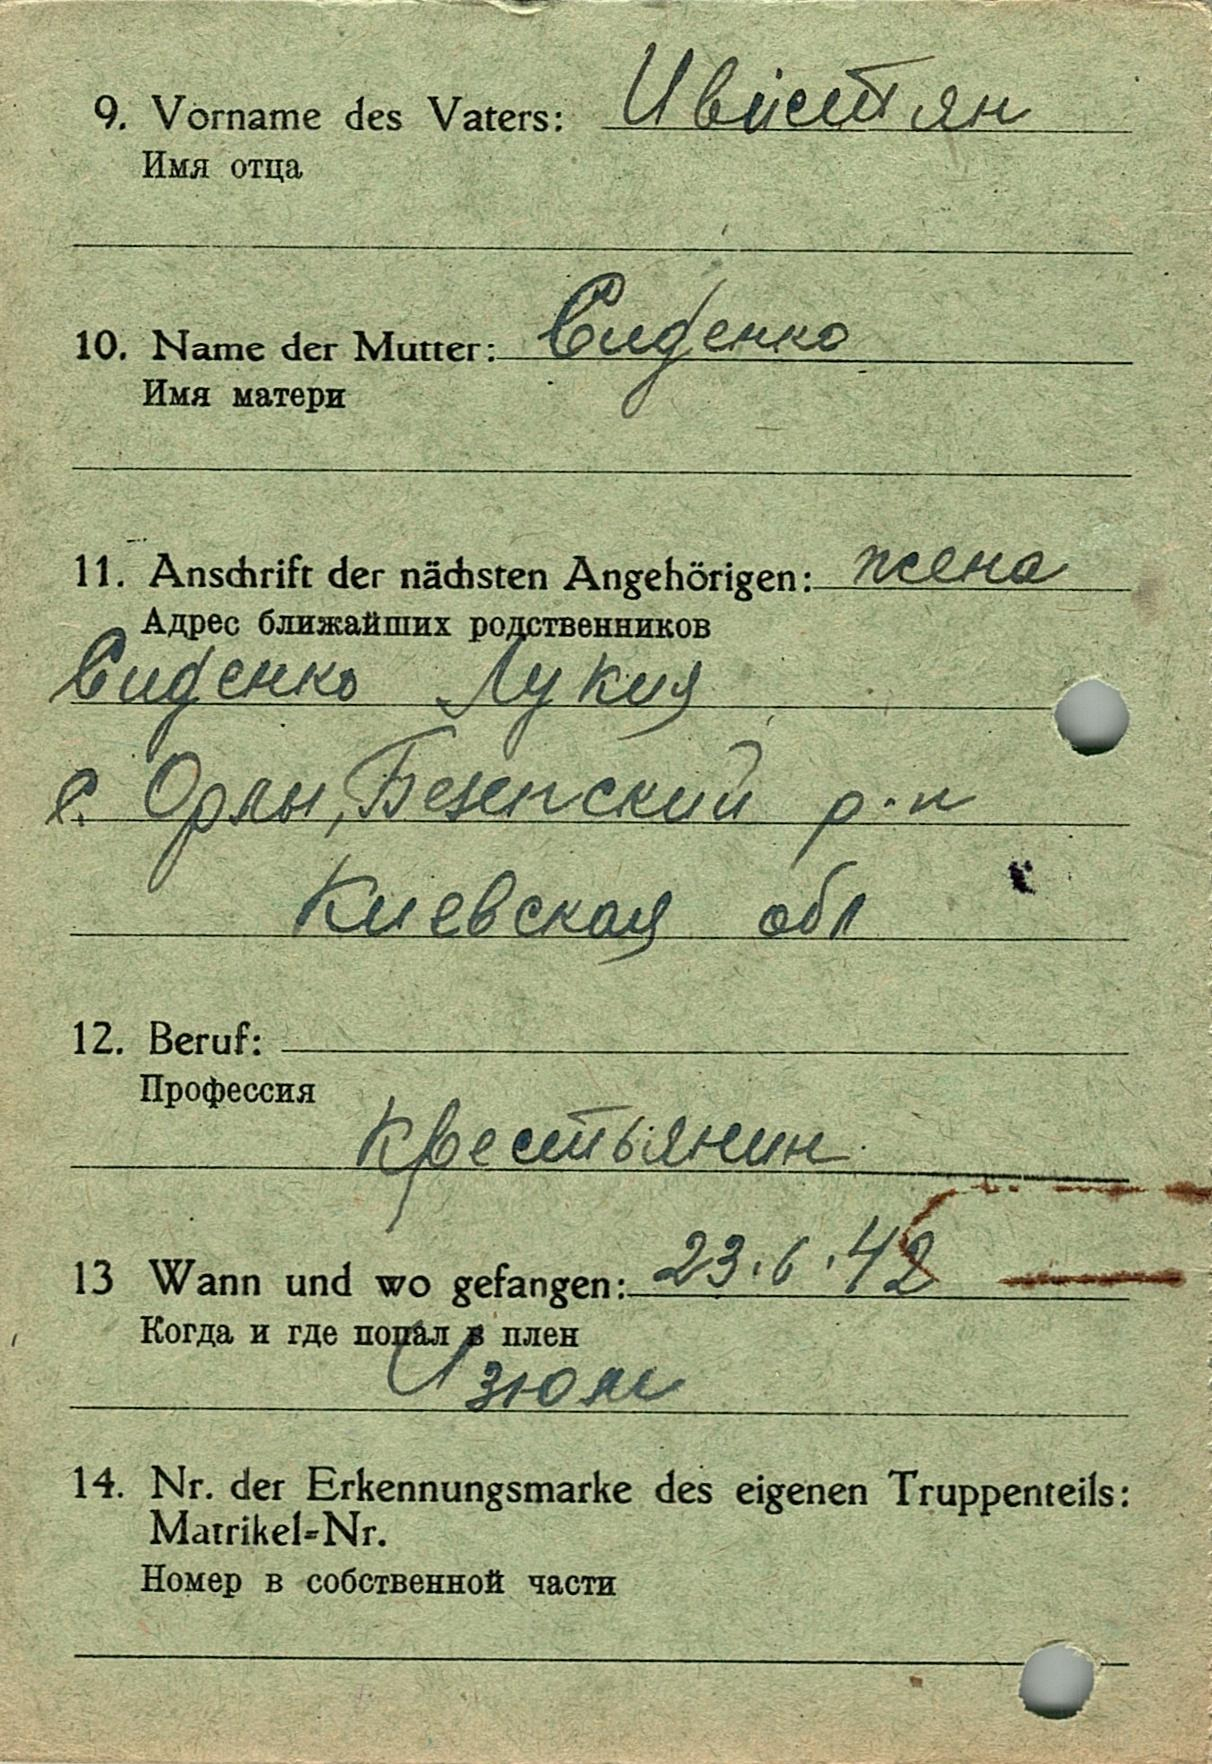 9. Vorname des Vaters: Ивистян
Имя отца
10. Name der Mutter: Сиденко
Имя матери
11. Anschrift der nächsten Angehörigen: жена
Адрес ближайших родственников
Сиденко Лукия
с. Орлы, р-н
Киевская обл
12. Beruf:
Профессия
Крестьянин
13 Wann und wo gefangen: 23.6.42
Когда и где попал в плен
Изюм
14. Nr. der Erkennungsmarke des eigenen Truppenteils:
Matrikel=Nr.
Номер в собственной части